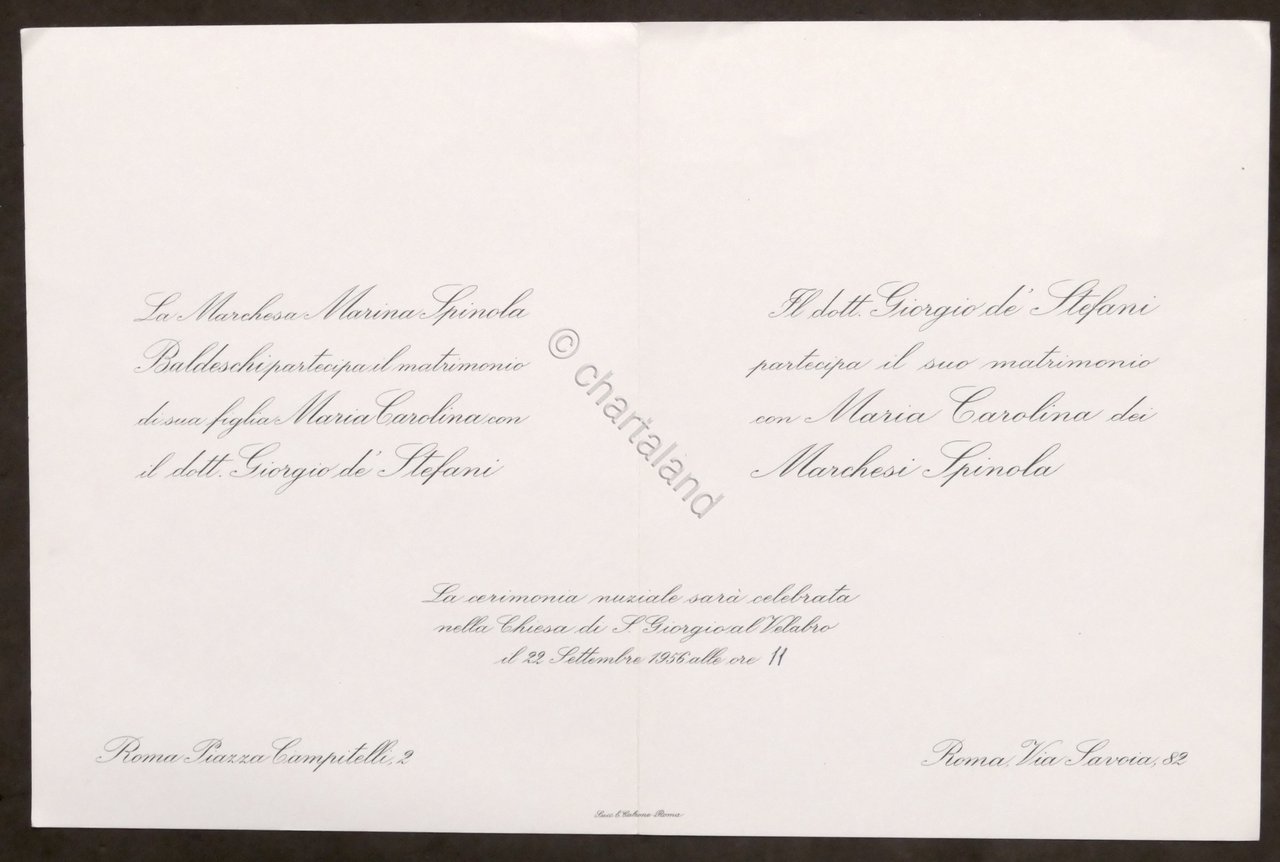 La Marchesa Marina Spinola
Baldeschi partecipa il matrimonio
di sua figlia Maria Carolina con
il dott. Giorgio de' Stefani
Il dott. Giorgio de' Stefani
partecipa il suo matrimonio
con Maria Carolina dei
Marchesi Spinola
© chartaland
La cerimonia nuziale sarà celebrata
nella Chiesa di S. Giorgio al Velabro
il 22 Settembre 1956 alle ore 11
Roma Piazza Campitelli, 2
Roma, Via Savoia, 82
Roma